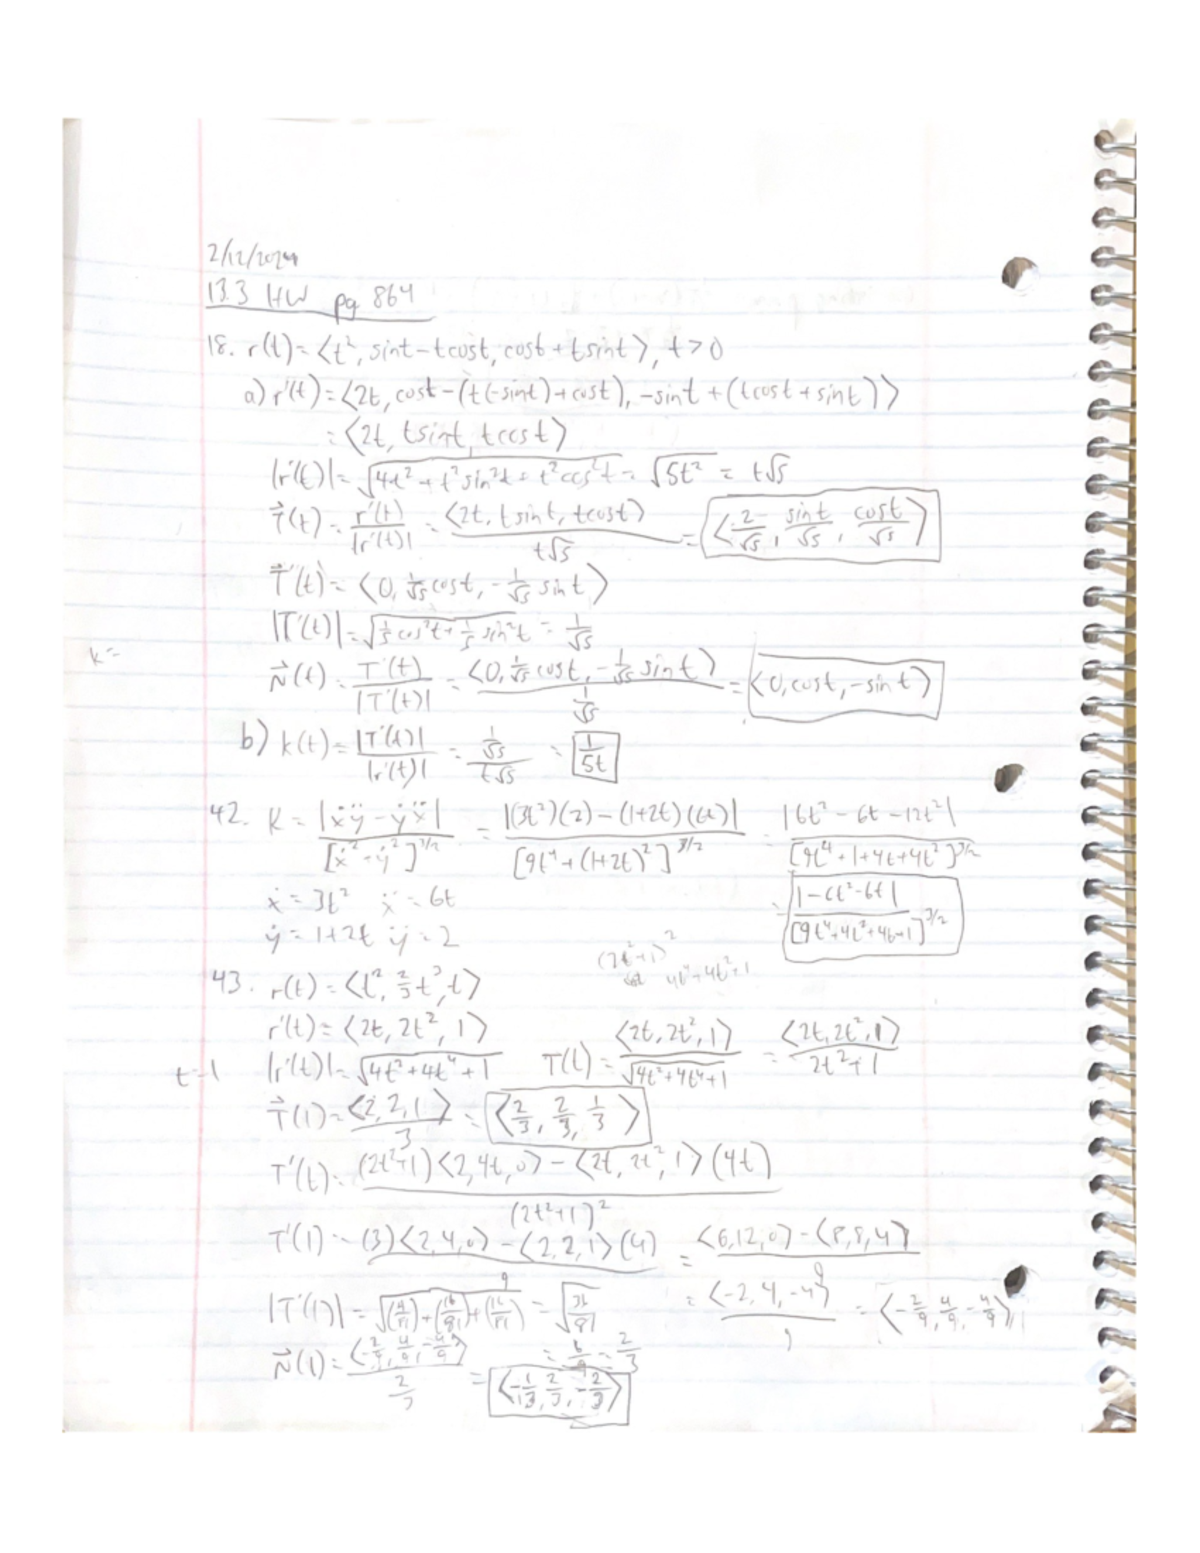 2/12/2024
13.3 HW pg 864
18. r(t) = <t², sint - tcost, cost + tsint>, t>0
a) r'(t) = <2t, cost - (t(-sint) + cost), -sint + (tcost + sint)>
= <2t, tsint, tcost>
|r'(t)| = √(4t² + t²sin²t + t²cos²t) = √(5t²) = t√5
T⃗(t) = r'(t)/|r'(t)| = <2t, tsint, tcost>/(t√5) = <2/√5, sint/√5, cost/√5>
T⃗'(t) = <0, 1/√5 cost, -1/√5 sint>
|T'(t)| = √(1/5 cos²t + 1/5 sin²t) = 1/√5
k=
N⃗(t) = T'(t)/|T'(t)| = <0, 1/√5 cost, -1/√5 sint>/(1/√5) = <0, cost, -sint>
b) k(t) = |T'(t)|/|r'(t)| = (1/√5)/(t√5) = 1/5t
42. K = |ẋÿ - ẏẍ|/[ẋ² + ẏ²]^3/2 = |(3t²)(2) - (1+2t)(6t)|/[9t⁴ + (1+2t)²]^3/2 = |6t² - 6t - 12t²|/[9t⁴ + 1 + 4t + 4t²]^3/2
ẋ = 3t² ẍ = 6t = |-6t² - 6t|/[9t⁴ + 4t² + 4t + 1]^3/2
ẏ = 1+2t ÿ = 2
(2t²+1)²
4t⁴+4t²+1
43. r(t) = <t², 2/3 t³, t>
r'(t) = <2t, 2t², 1>
t=1 |r'(t)| = √(4t² + 4t⁴ + 1) T(t) = <2t, 2t², 1>/√(4t² + 4t⁴ + 1) = <2t, 2t², 1>/(2t² + 1)
T⃗(1) = <2, 2, 1>/3 = <2/3, 2/3, 1/3>
T'(t) = ((2t²+1)<2, 4t, 0> - <2t, 2t², 1>(4t))/(2t²+1)²
T'(1) = ((3)<2, 4, 0> - <2, 2, 1>(4))/9 = (<6, 12, 0> - <8, 8, 4>)/9
= <-2, 4, -4>/9 = <-2/9, 4/9, -4/9>
|T'(1)| = √((4/81) + (16/81) + (16/81)) = √(36/81)
= 6/9 = 2/3
N⃗(1) = <-2/9, 4/9, -4/9>/(2/3) = <-1/3, 2/3, -2/3>